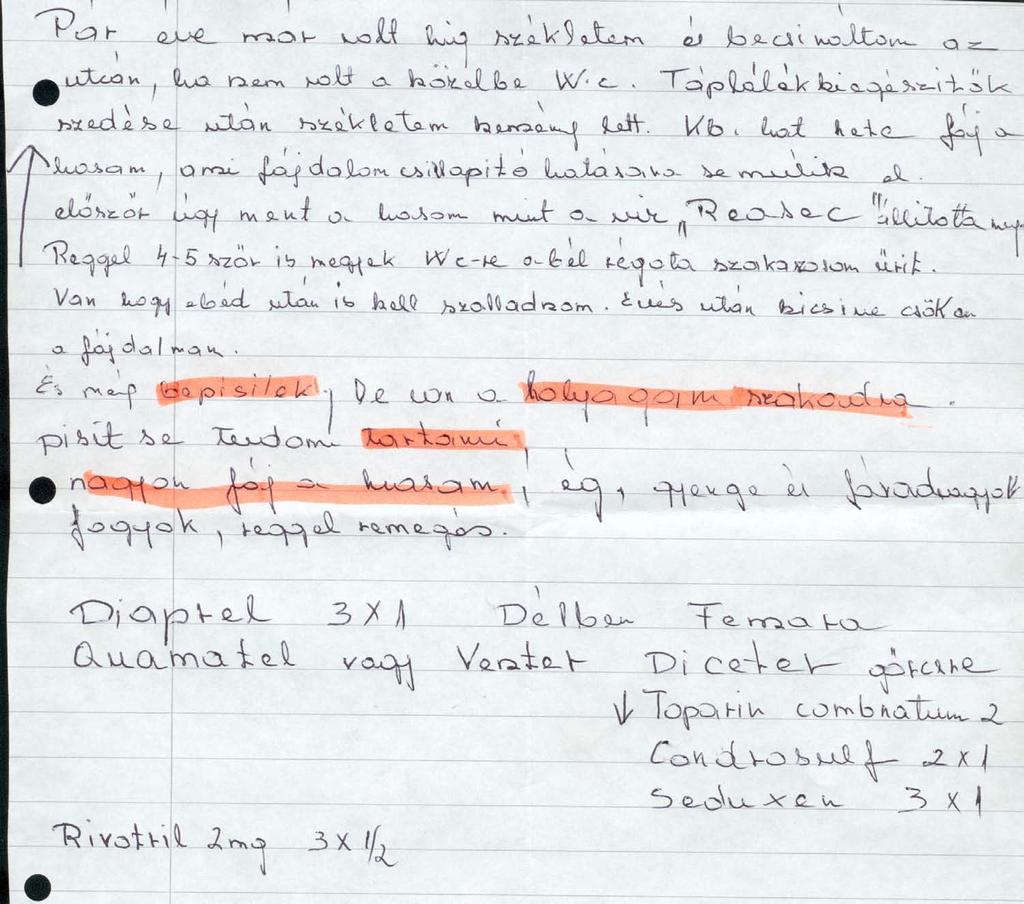 Pár éve már volt híg székletem és becsináltam az
utcán, ha nem volt a közelbe W.c. Táplálékkiegészitők
szedése után székletem kemény lett. Kb. hat hete fáj a
hasam, ami fájdalom csillapitó hatására se múlik el.
először úgy ment a hasam mint a viz „Reasec" állitotta meg.
Reggel 4-5 ször is megyek Wc-re a bél régota szakaszosan ürit.
Van hogy ebéd után is kell szalladnom. Evés után kicsine csökken
a fájdalmam.
És még bepisilek, De von a holyagom szakadva.
pisit se tudom tartani
nagyon fáj a hasam, ég, gyenge és fáradvagyok
fogyok, reggel remegés.
Diaprel 3x1 Délben Femara
Quamatel vagy Verztet Dicetet görcsre
↓ Toparin combnatum 2
Condrosulf 2x1
Seduxen 3x1
Rivotril 2mg 3x1/2